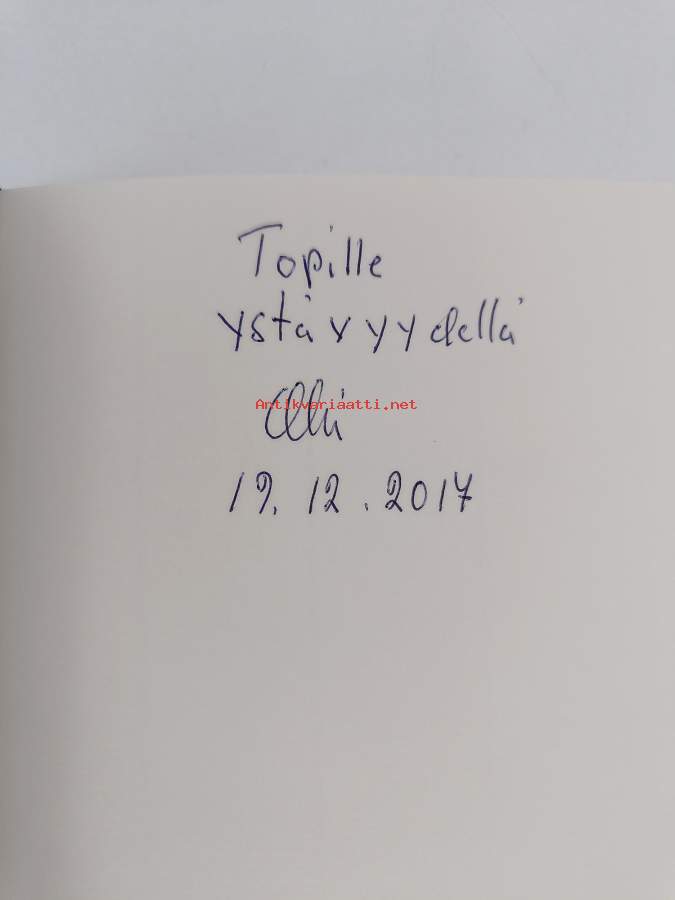 Topille
ystävyydellä
Olli
Antikvariaatti.net
19.12.2017